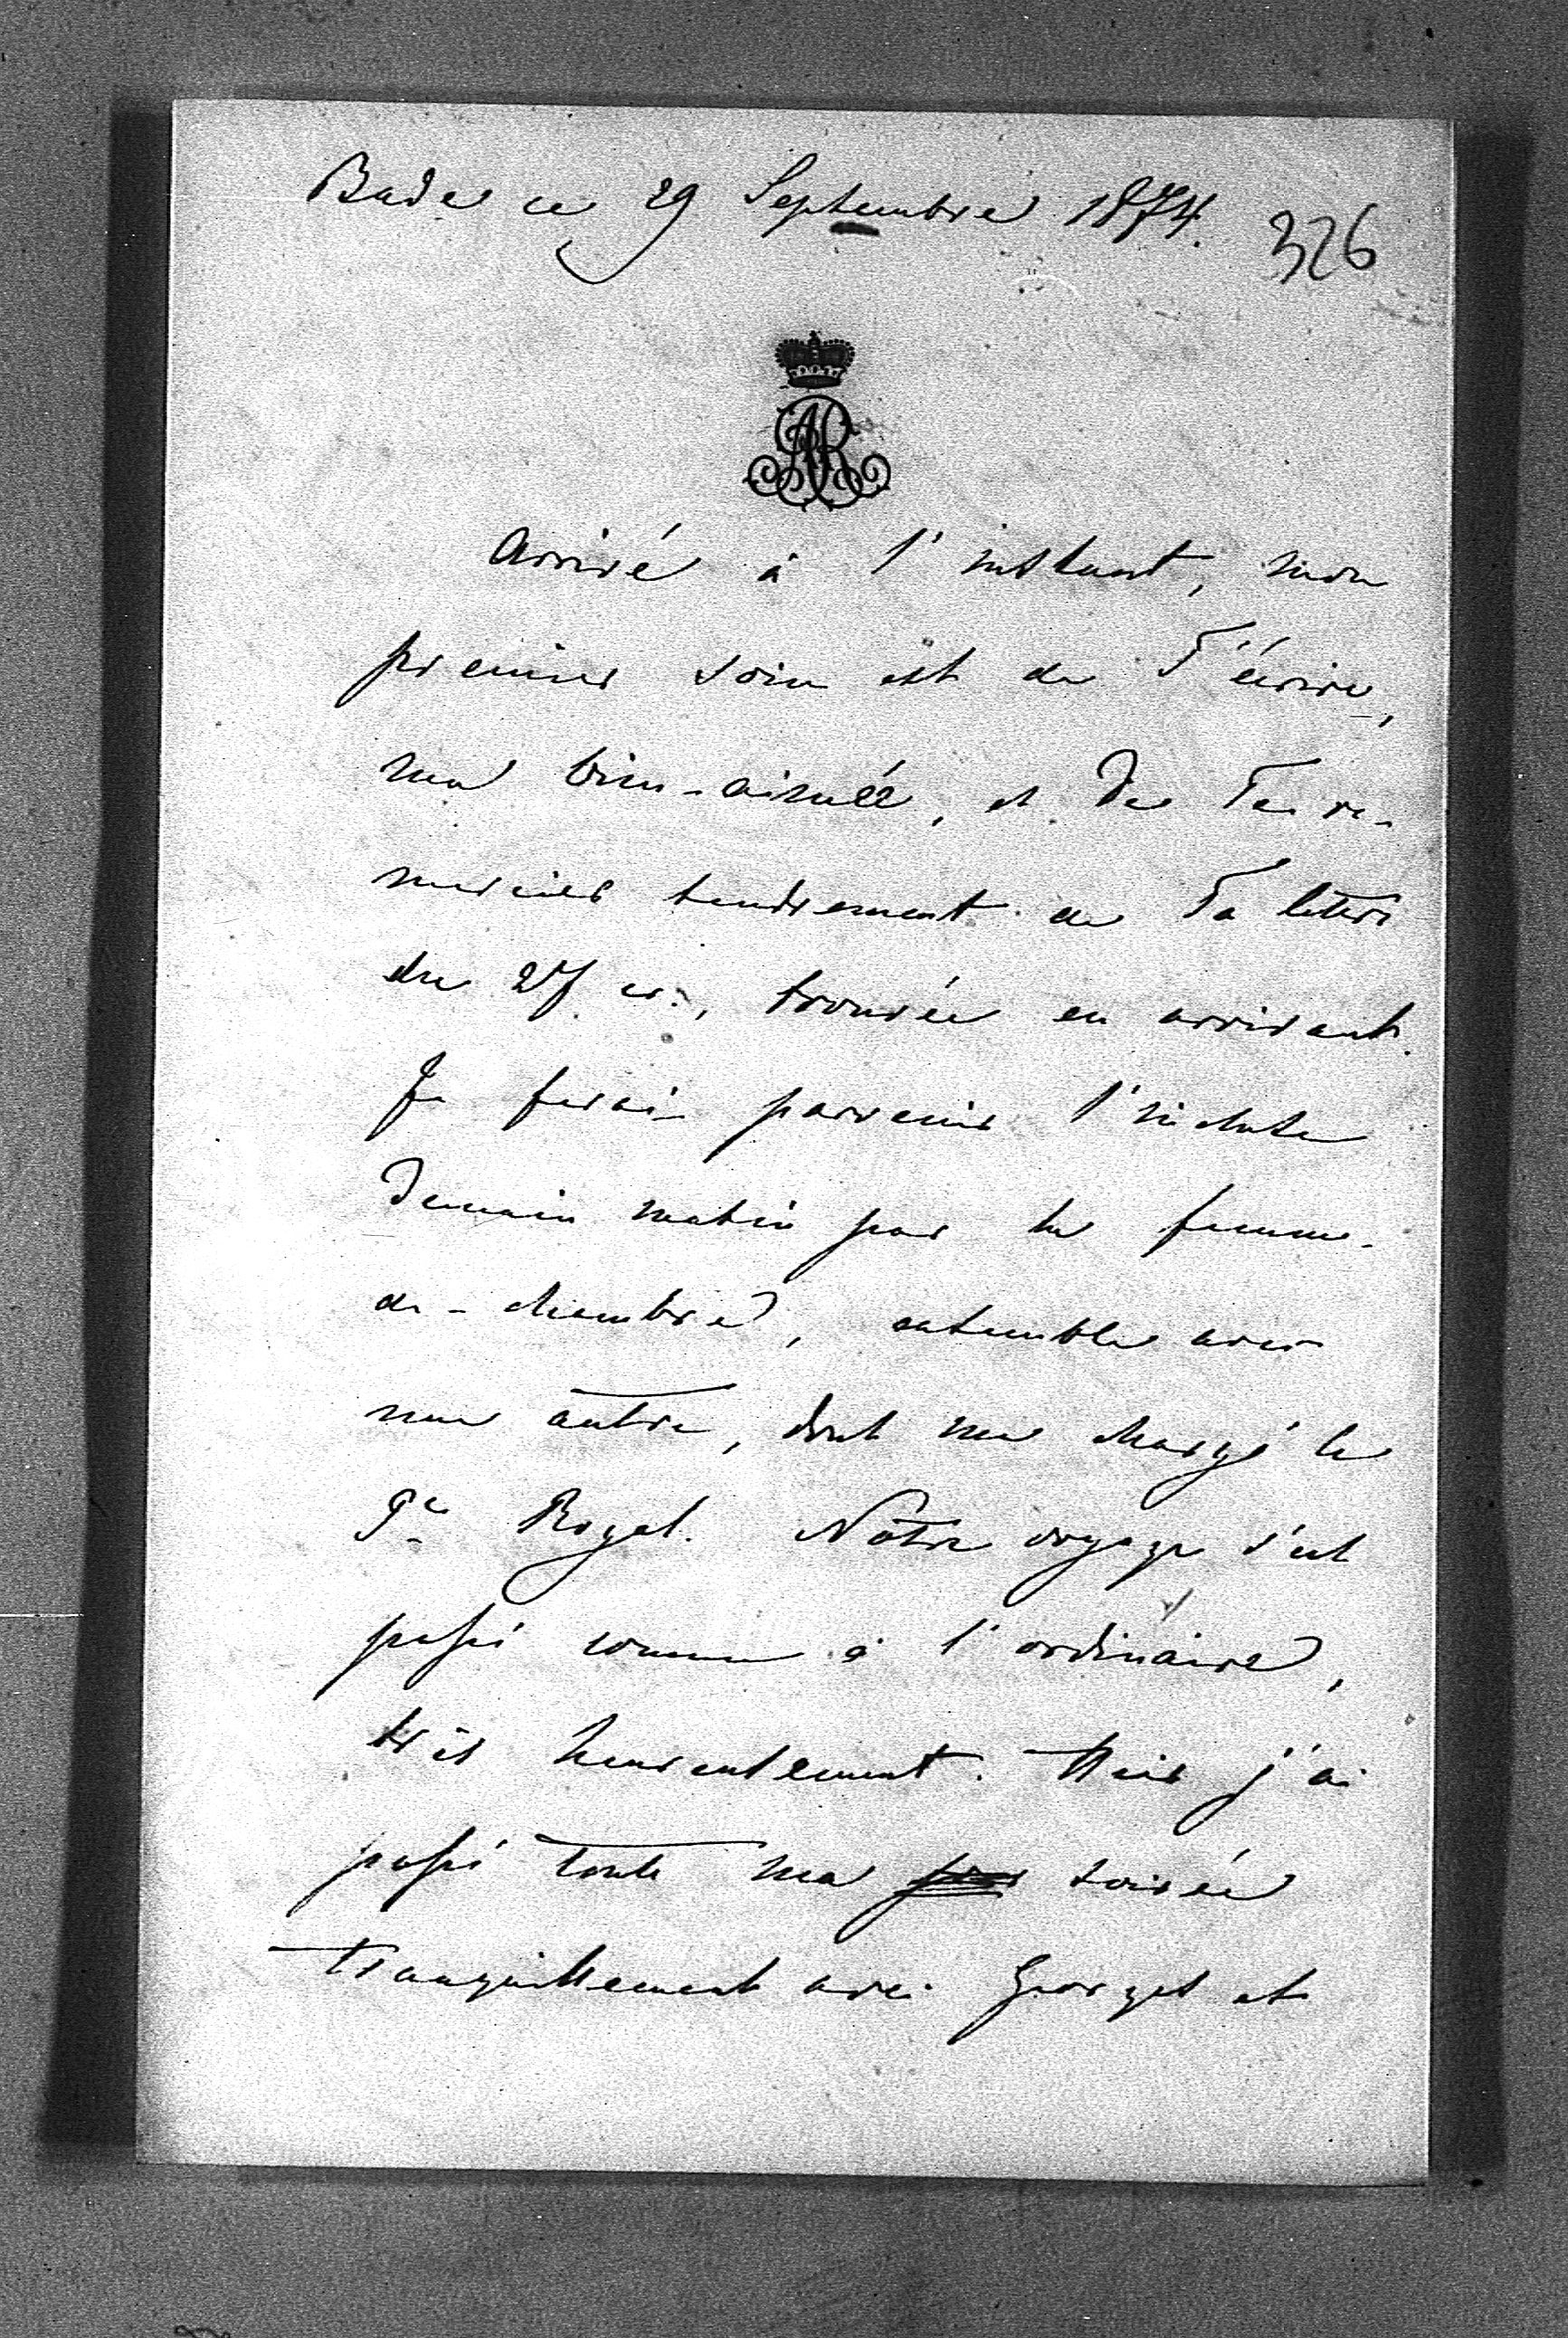 Bade ce 29 Septembre 1874.
326
AR
Arrivé à l'instant, mon
premier soin est de T'écrire,
ma bien-aimée, et de Te re-
mercier tendrement de Ta lettre
du 27 cr., trouvée en arrivant.
Je ferai parvenir l'incluse
demain matin par la femme-
de-chambre, ensemble avec
une autre, dont me chargé le
Pce Royal. Nôtre voyage s'est
passé comme à l'ordinaire,
très heureusement. Hier j'ai
passé toute ma soirée
tranquillement avec Georges et